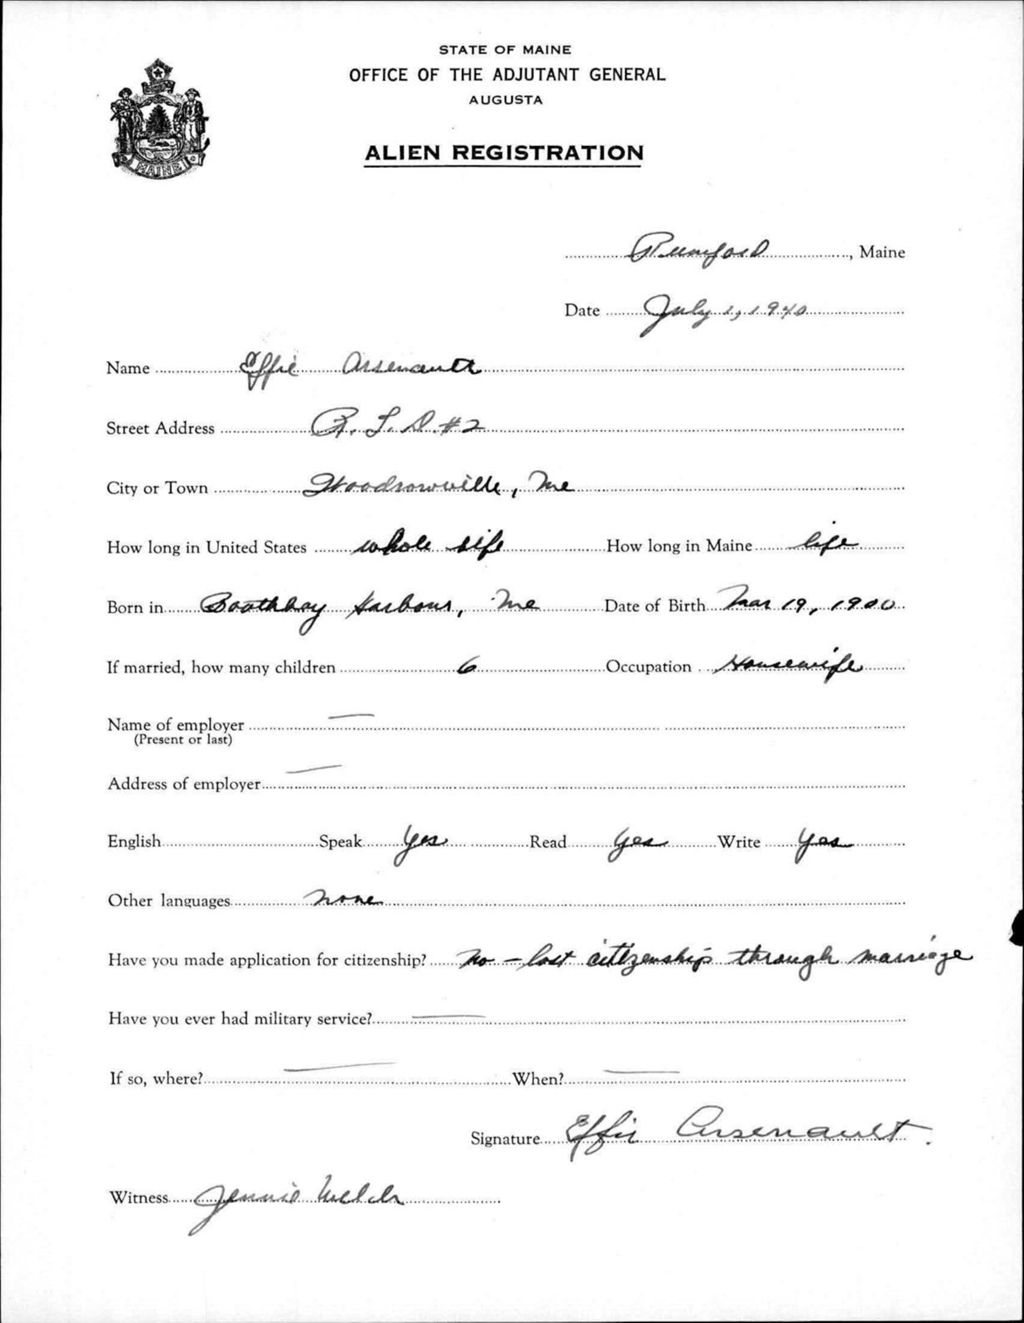 STATE OF MAINE
OFFICE OF THE ADJUTANT GENERAL
AUGUSTA
ALIEN REGISTRATION
MAINE
Rumford, Maine
Date July 1, 1940
Name Effie Arsenault
Street Address R. F. D. #2
City or Town Me
How long in United States whole life How long in Maine life
Born in Boothbay Harbour, Me Date of Birth Mar 19, 1900
If married, how many children 6 Occupation Housewife
Name of employer —
(Present or last)
Address of employer —
English Speak Yes Read Yes Write Yes
Other languages none
Have you made application for citizenship? No – lost citizenship through marriage
Have you ever had military service? —
If so, where? — When? —
Signature Effie Arsenault.
Witness Jennie Welch